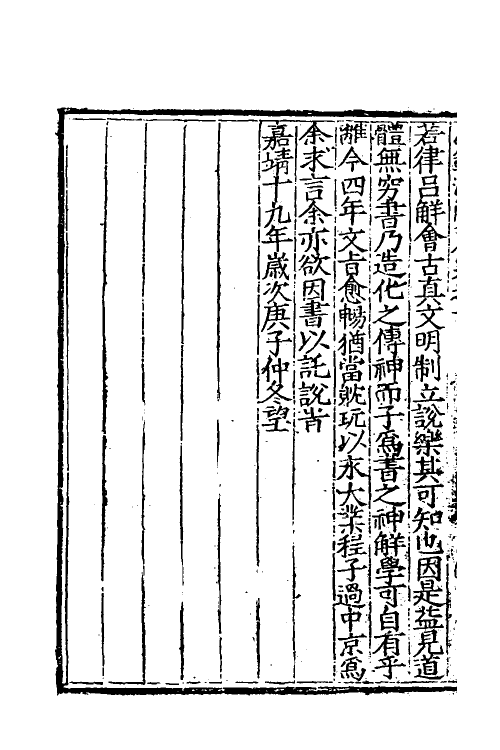 若律呂解會古真文明制立說樂其可知也因是益見道
體無窮書乃造化之傳神而子寫書之神解學可自有乎
離今四年文㫖愈暢猶當躭玩以永大業程子過中京寫
余求言余亦欲因書以託說肯
嘉靖十九年歲次庚子仲冬望